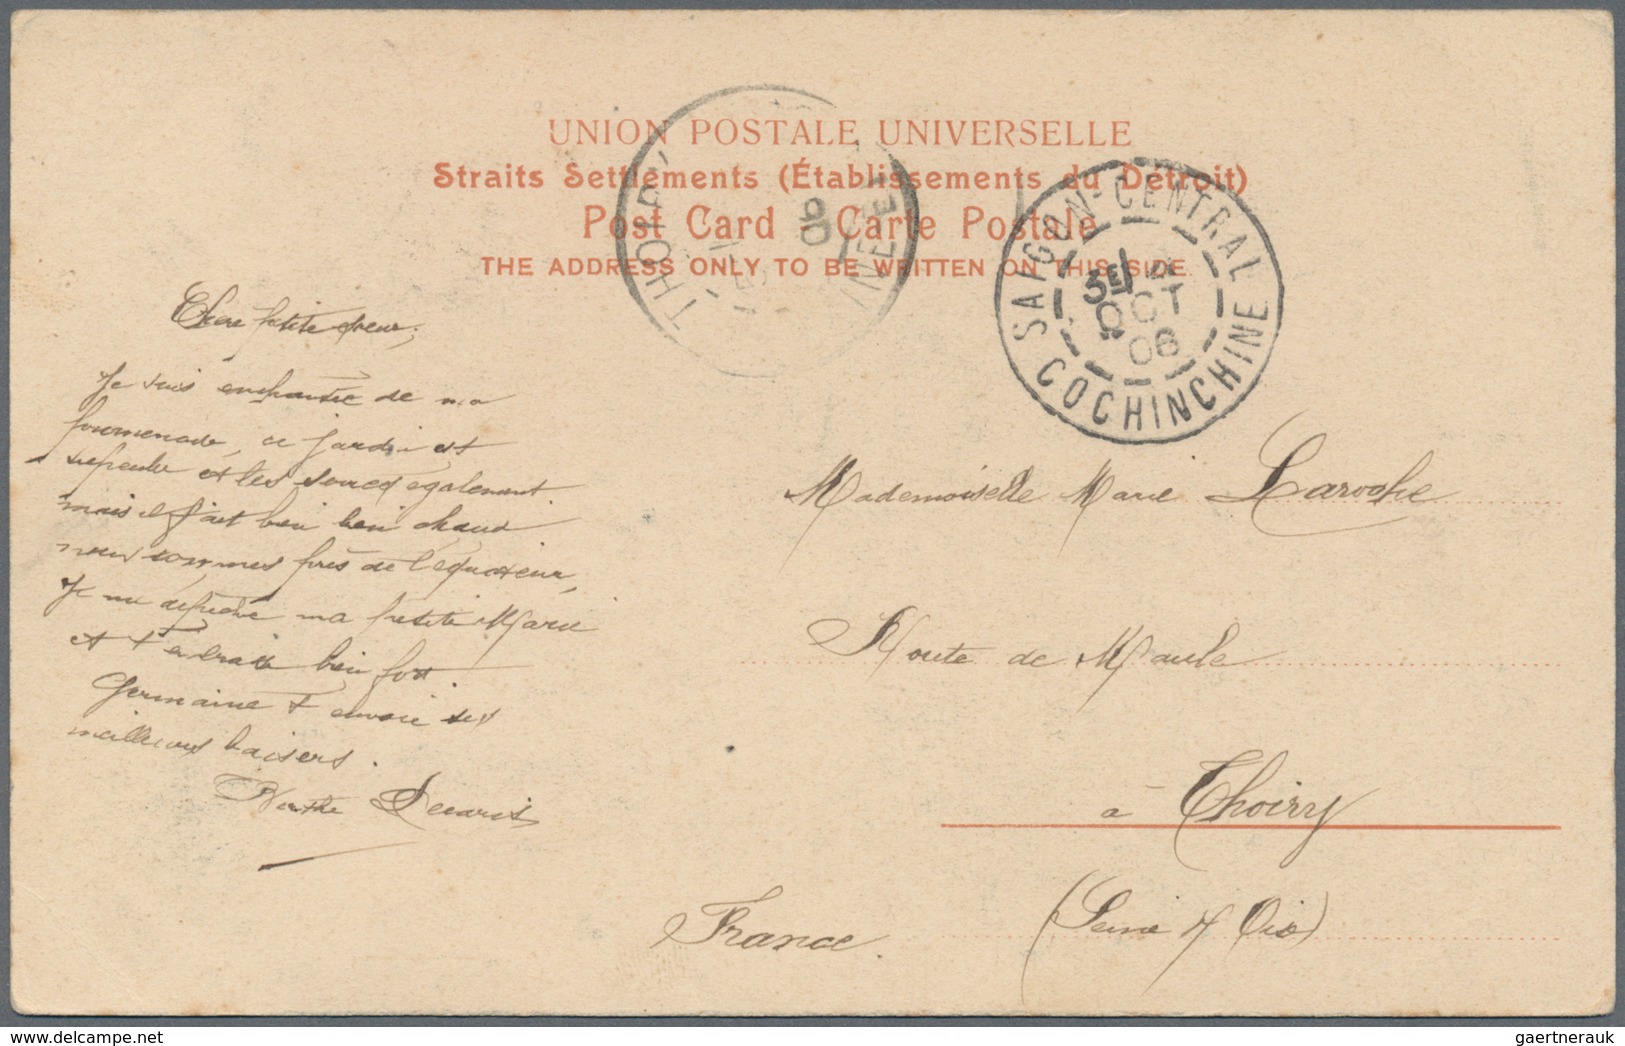 UNION POSTALE UNIVERSELLE
Straits Settlements (Établissements du Détroit)
Post Card - Carte Postale
THE ADDRESS ONLY TO BE WRITTEN ON THIS SIDE.
THOIR
06
SAIGON-CENTRAL
OCT
06
COCHINCHINE
Chère petite
Je suis enchantée de ma
proumenade, ce jardin est
superbe et les également.
mais il fait bien bien chaud
nous sommes près de l'équateur,
Je me dépêche ma petite Marie
et t'embrasse bien fort
Germaine t'envoie ses
meilleurs baisers.
Berthe
Mademoiselle Marie Laroche
Route de Maule
à Thoiry
(Seine & Oise)
France
gaertnerauk